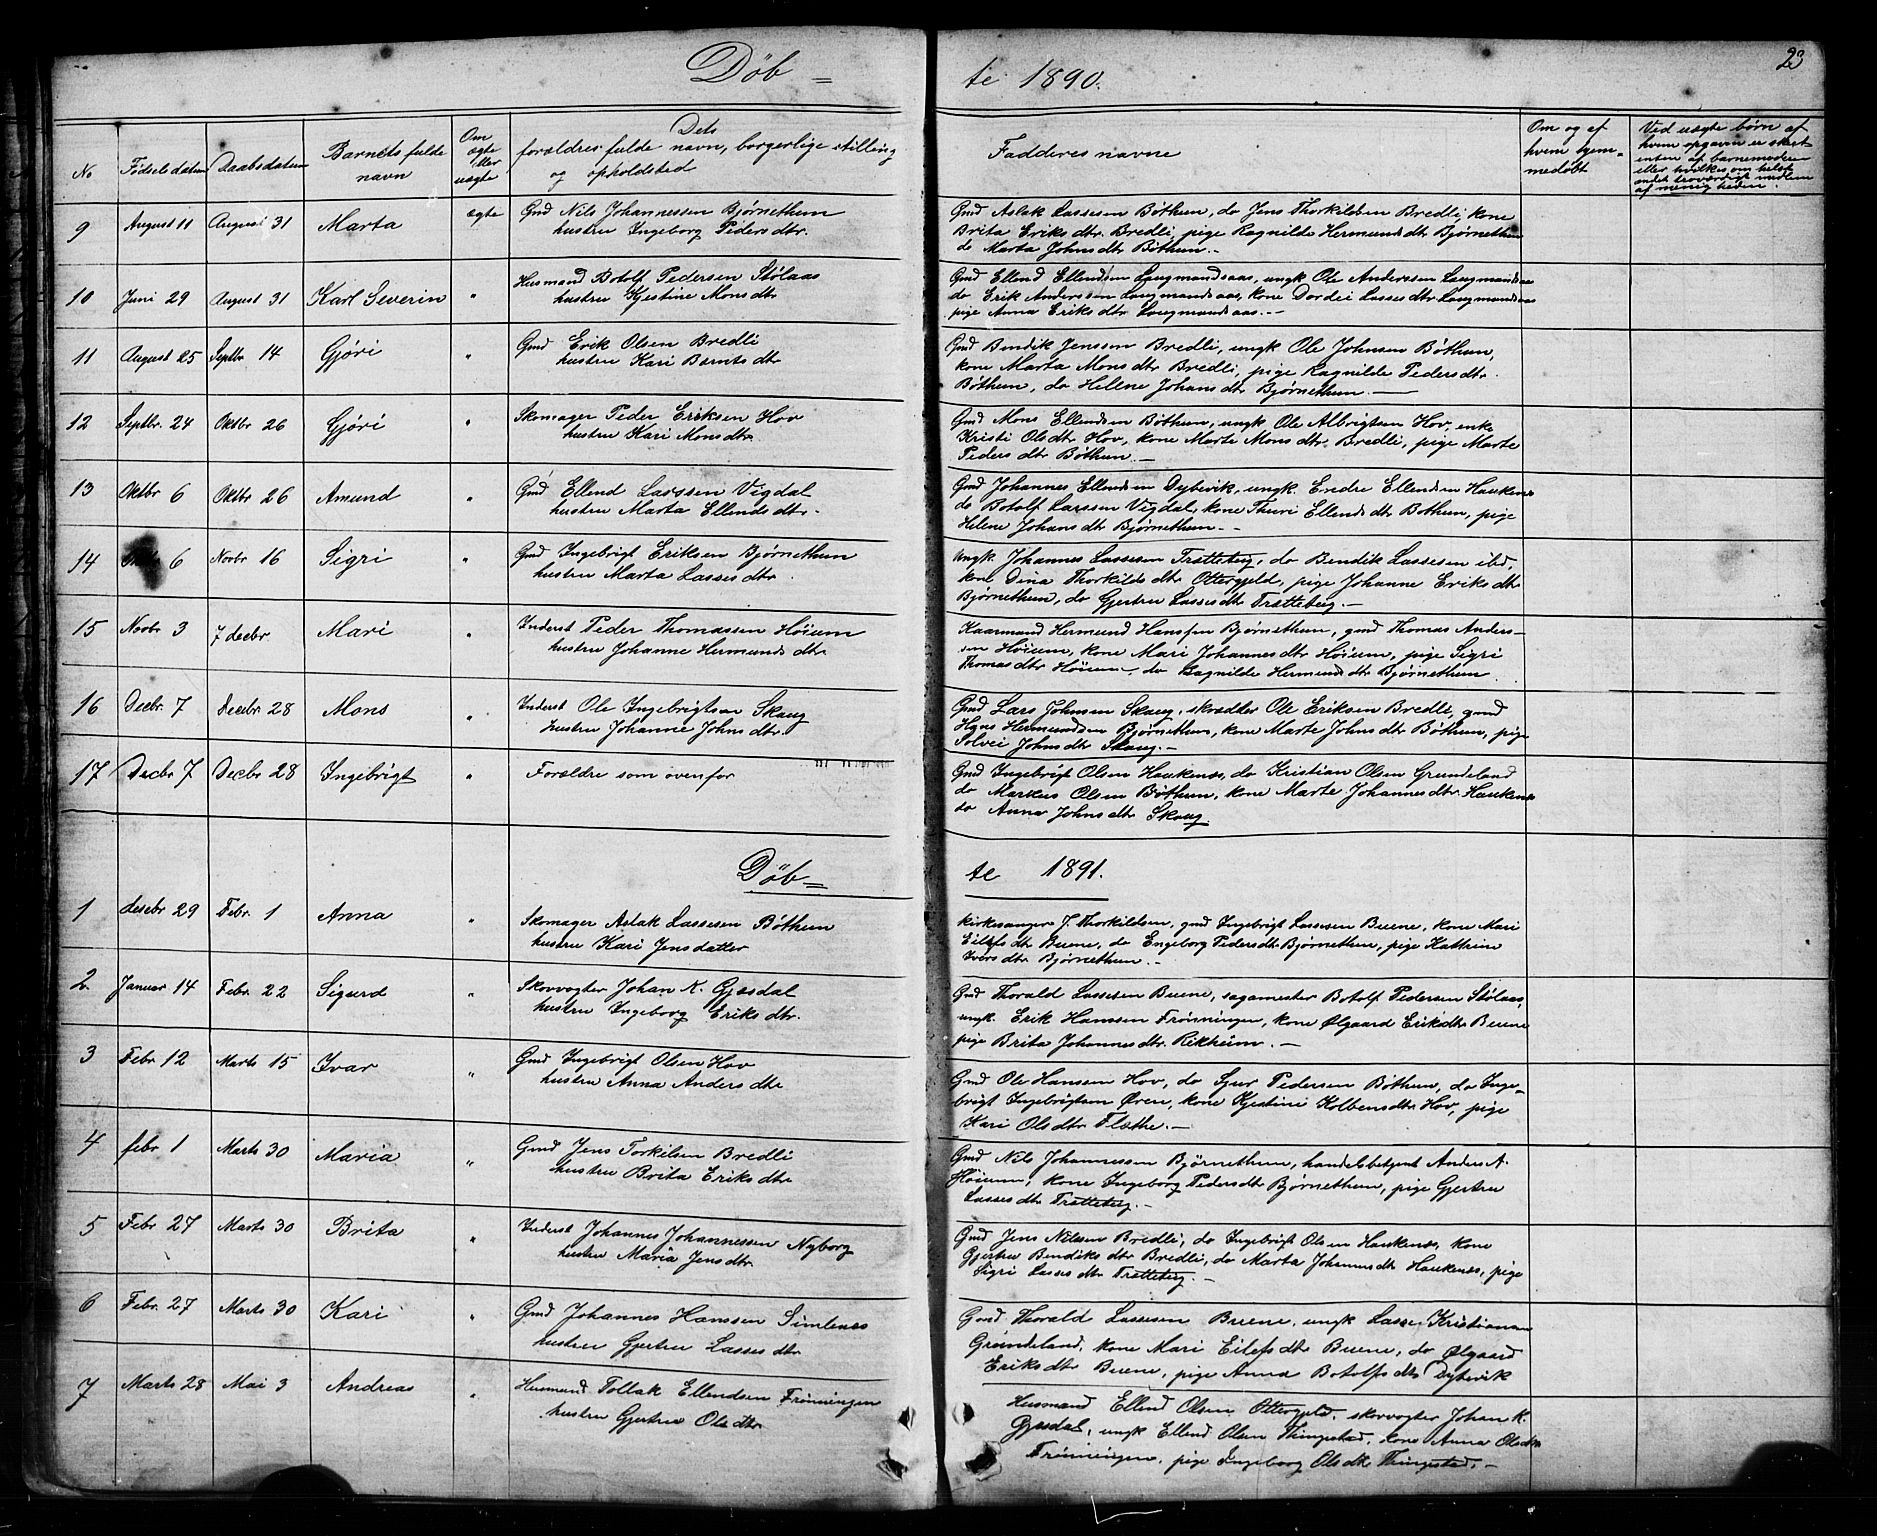 23
Døb = te 1890.
No
Fødselsdatum
Daabsdatum
Barnets fulde
navn
Om
ægte
eller
uægte
Dets
forældres fulde navn, borgerlige stilling
og opholdsted
Fadderes navne
Om og af
hvem hjem=
medøbt
Ved uægte børn af
hvem opgaven er skeet
enten af barnemoderen
eller hvilket som helst
andet troværdigt medlem
af menigheden.
9 August 11 August 31 Marta ægte
Gmd Nils Johannessen Bjørnethun
hustru Ingeborg Pedersdtr.
Gmd Aslak Lassesen Bøthun, do Jens Thorkildsen Bredli, kone
Brita Eriksdtr. Bredli, pige Ragnilde Hermundsdtr Bjørnethun
do Marta Johnsdtr Bøthun. -
10 Juni 29 August 31 Karl Severin "
Husmand Botolf Pedersen Stølaas
hustru Kjestine Monsdtr
Gmd Ellend Ellendsen Laugmandsaas, ungk Ole Anderssen Laugmandsaas
do Erik Anderssen Laugmandsaas, kone Dordei Lassesdtr Laugmandsaas
pige Anna Eriksdtr Laugmandsaas. -
11 August 25 Septbr 14 Gjøri "
Gmd Erik Olsen Bredli
hustru Kari Berntsdtr
Gmd Bendik Jenssen Bredli, ungk Ole Johnsen Bøthun,
kone Marta Monsdtr Bredli, pige Ragnilde Pedersdtr.
Bøthun, do Helene Johansdtr Bjørnethun. -
12 Septbr. 24 Oktbr 26 Gjøri "
Skomager Peder Eriksen Hov
hustru Kari Monsdtr.
Gmd Mons Ellendsen Bøthun, ungk Ole Albrigtsen Hov, enke
Kristi Olsdtr Hov, kone Marte Monsdtr. Bredli, pige Marte
Pedersdtr Bøthun. -
13 Oktbr 6 Oktbr 26 Amund "
Gmd Ellend Larssen Vigdal
hustru Marta Ellendsdtr.
Gmd Johannes Ellendsen Dybevik, ungk. Endre Ellendsen Haukenes
do Botolf Larssen Vigdal, kone Thuri Ellendsdtr Bøthun, pige
Helene Johansdtr Bjørnethun. -
14 6 Novbr 16 Sigri "
Gmd Ingebrigt Eriksen Bjørnethun
hustru Marta Lassesdtr.
Ungk. Johannes Lassesen Trætteteig, do Bendik Lassesen ibd,
kone Dina Thorkildsdtr Ottergjeld, pige Johanne Eriksdtr
Bjørnethun, do Gjertru Lassesdtr Trætteteig. -
15 Novbr 3 7 decbr Mari "
Inderst Peder Thomassen Høium
hustru Johanne Hermundsdtr
Kaarmand Hermund Hanssen Bjørnethun, gmd Thomas Anders-
sen Høium, kone Mari Johannesdtr Høium, pige Sigri
Thomasdtr Høium, do Ragnilde Hermundsdtr Bjørnethun.
16 Decbr. 7 Decbr 28 Mons "
Inderst Ole Ingebrigtsen Skaug
hustru Johanne Johnsdtr.
Gmd Lars Johnsen Skaug, skrædder Ole Eriksen Bredli, gmd
Hans Hermundsen Bjørnethun, kone Marte Johnsdtr Bøthun, pige
Solvei Johnsdtr Skaug. -
17 Decbr 7 Decbr 28 Ingebrigt "
Forældre som ovenfor
Gmd Ingebrigt Olsen Haukenes, do Kristian Olsen Grundeland
do Markus Olsen Bøthun, kone Marte Johannesdtr Haukenes
do Anna Johnsdtr Skaug.
Døb = te 1891.
1 decbr 29 Febr. 1 Anna "
Skomager Aslak Lassesen Bøthun
hustru Kari Jensdatter
kirkesanger J. Thorkildsen, gmd Ingebrigt Lassesen Buene, kone Mari
Eilefsdtr Buene, do Engeborg Pedersdtr Bjørnethun, pige Kathrine
Iversdtr Bjørnethun. -
2. Januar 14 Febr. 22 Sigurd "
Skovvogter Johan K. Gjesdal
hustru Ingeborg Eriksdtr.
Gmd Thorald Lassesen Buene, sagamester Botolf Pedersen Stølaas,
ungk. Erik Hanssen Frønningen, kone Ølgaard Eriksdtr Buene
pige Brita Johannesdtr. Rikheim. -
3 Febr 12 Marts 15 Ivar "
Gmd Ingebrigt Olsen Hov
hustru Anna Andersdtr
Gmd Ole Hanssen Hov, do Sjur Pedersen Bøthun, do Inge-
brigt Ingebrigtsen Øren, kone Kjestine Kolbensdtr Hov, pige
Kari Olsdtr Flæthe. -
4 febr 1 Marts 30 Maria "
Gmd Jens Torkilsen Bredli
hustru Brita Eriksdtr
Gmd Nils Johannessen Bjørnethun, handelsbetjent Anders A.
Høium, kone Ingeborg Pedersdtr Bjørnethun, pige Gjertru
Lassesdtr Trætteteig. -
5 Febr 27 Marts 30 Brita "
Inderst Johannes Johannessen Nyborg
hustru Maria Jensdtr.
Gmd Jens Nilssen Bredli, do Ingebrigt Olsen Haukenes, kone
Gjertru Bendiksdtr Bredli, do Marta Johannesdtr Haukenes, pige
Sigri Lassesdtr Trætteteig. -
6 Febr. 27 Marts 30 Kari "
Gmd Johannes Hanssen Simlenes
hustru Gjertru Lassesdtr
Gmd Thorald Lassesen Buene, ungk Lasse Kristiansen
Grundeland, kone Mari Eilefsdtr Buene, do Ølgaard
Eriksdtr Buene, pige Anna Botolfsdtr Dybevik
7 Marts 28 Mai 3 Andreas "
Husmand Tollak Ellendsen Frønningen
hustru Gjertru Olsdtr
Husmand Ellend Olsen Ottergjeld, skovvogter Johan K.
Gjesdal, ungk Ellend Olsen Thingstad, kone Anna Olsdtr
Frønningen, pige Ingeborg Olsdtr Thingstad. -